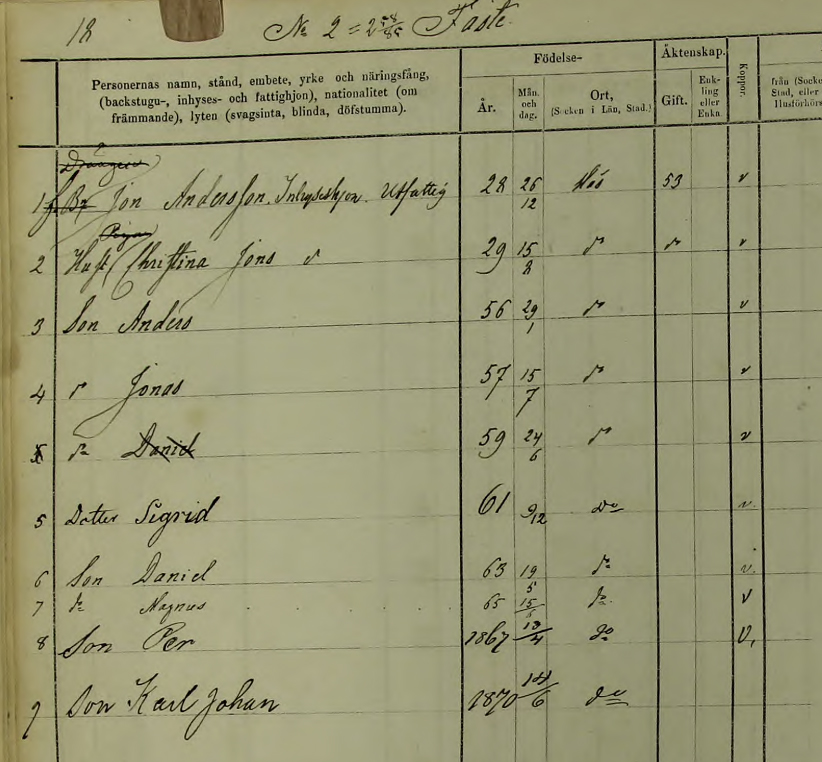 18 No 2 = 2 58/85 Fäste.
Födelse- Äktenskap.
Personernas namn, stånd, embete, yrke och näringsfång,
(backstugu-, inhyses- och fattighjon), nationalitet (om
främmande), lyten (svagsinta, blinda, döfstumma).
År. Mån. och dag. Ort, (Socken i Län, Stad.) Gift. Enk- ling eller Enka Koppor.
från (Socke
Stad, eller
Husförhörs
Drängen
1 Br Jon Andersson. Inhyseshjon. Utfattig 28 26/12 53 v
Pigan
2 Hust Christina Jons d 29 15/8 d d v
3 Son Anders 56 29/1 d v
4 d Jonas 57 15/7 d v
5 do Daniel 59 24/6 d v
5 Dotter Sigrid 61 9/12 do v
6 Son Daniel 63 19/5 do v.
7 do Magnus 65 15/6 do. v
8 Son Per 1867 13/4 do v,
9 Son Karl Johan 1870 14/6 do